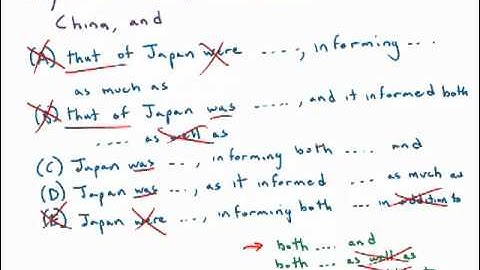 China, and
(A) that of Japan were ...., informing ...
as much as
(B) that of Japan was ....., and it informed both
.... as well as
(C) Japan was ..., informing both .... and
(D) Japan was ..., as it informed ... as much as
(E) Japan were ..., informing both ... in addition to
→ both .... and
both ... as well as